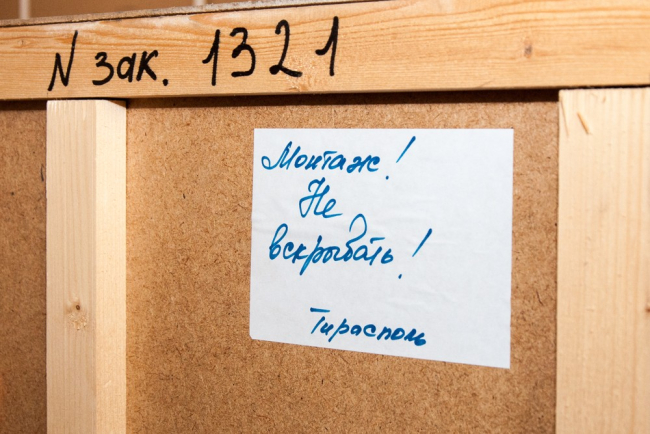 N зак. 1321
Монтаж!
Не
вскрывать!
Тирасполь